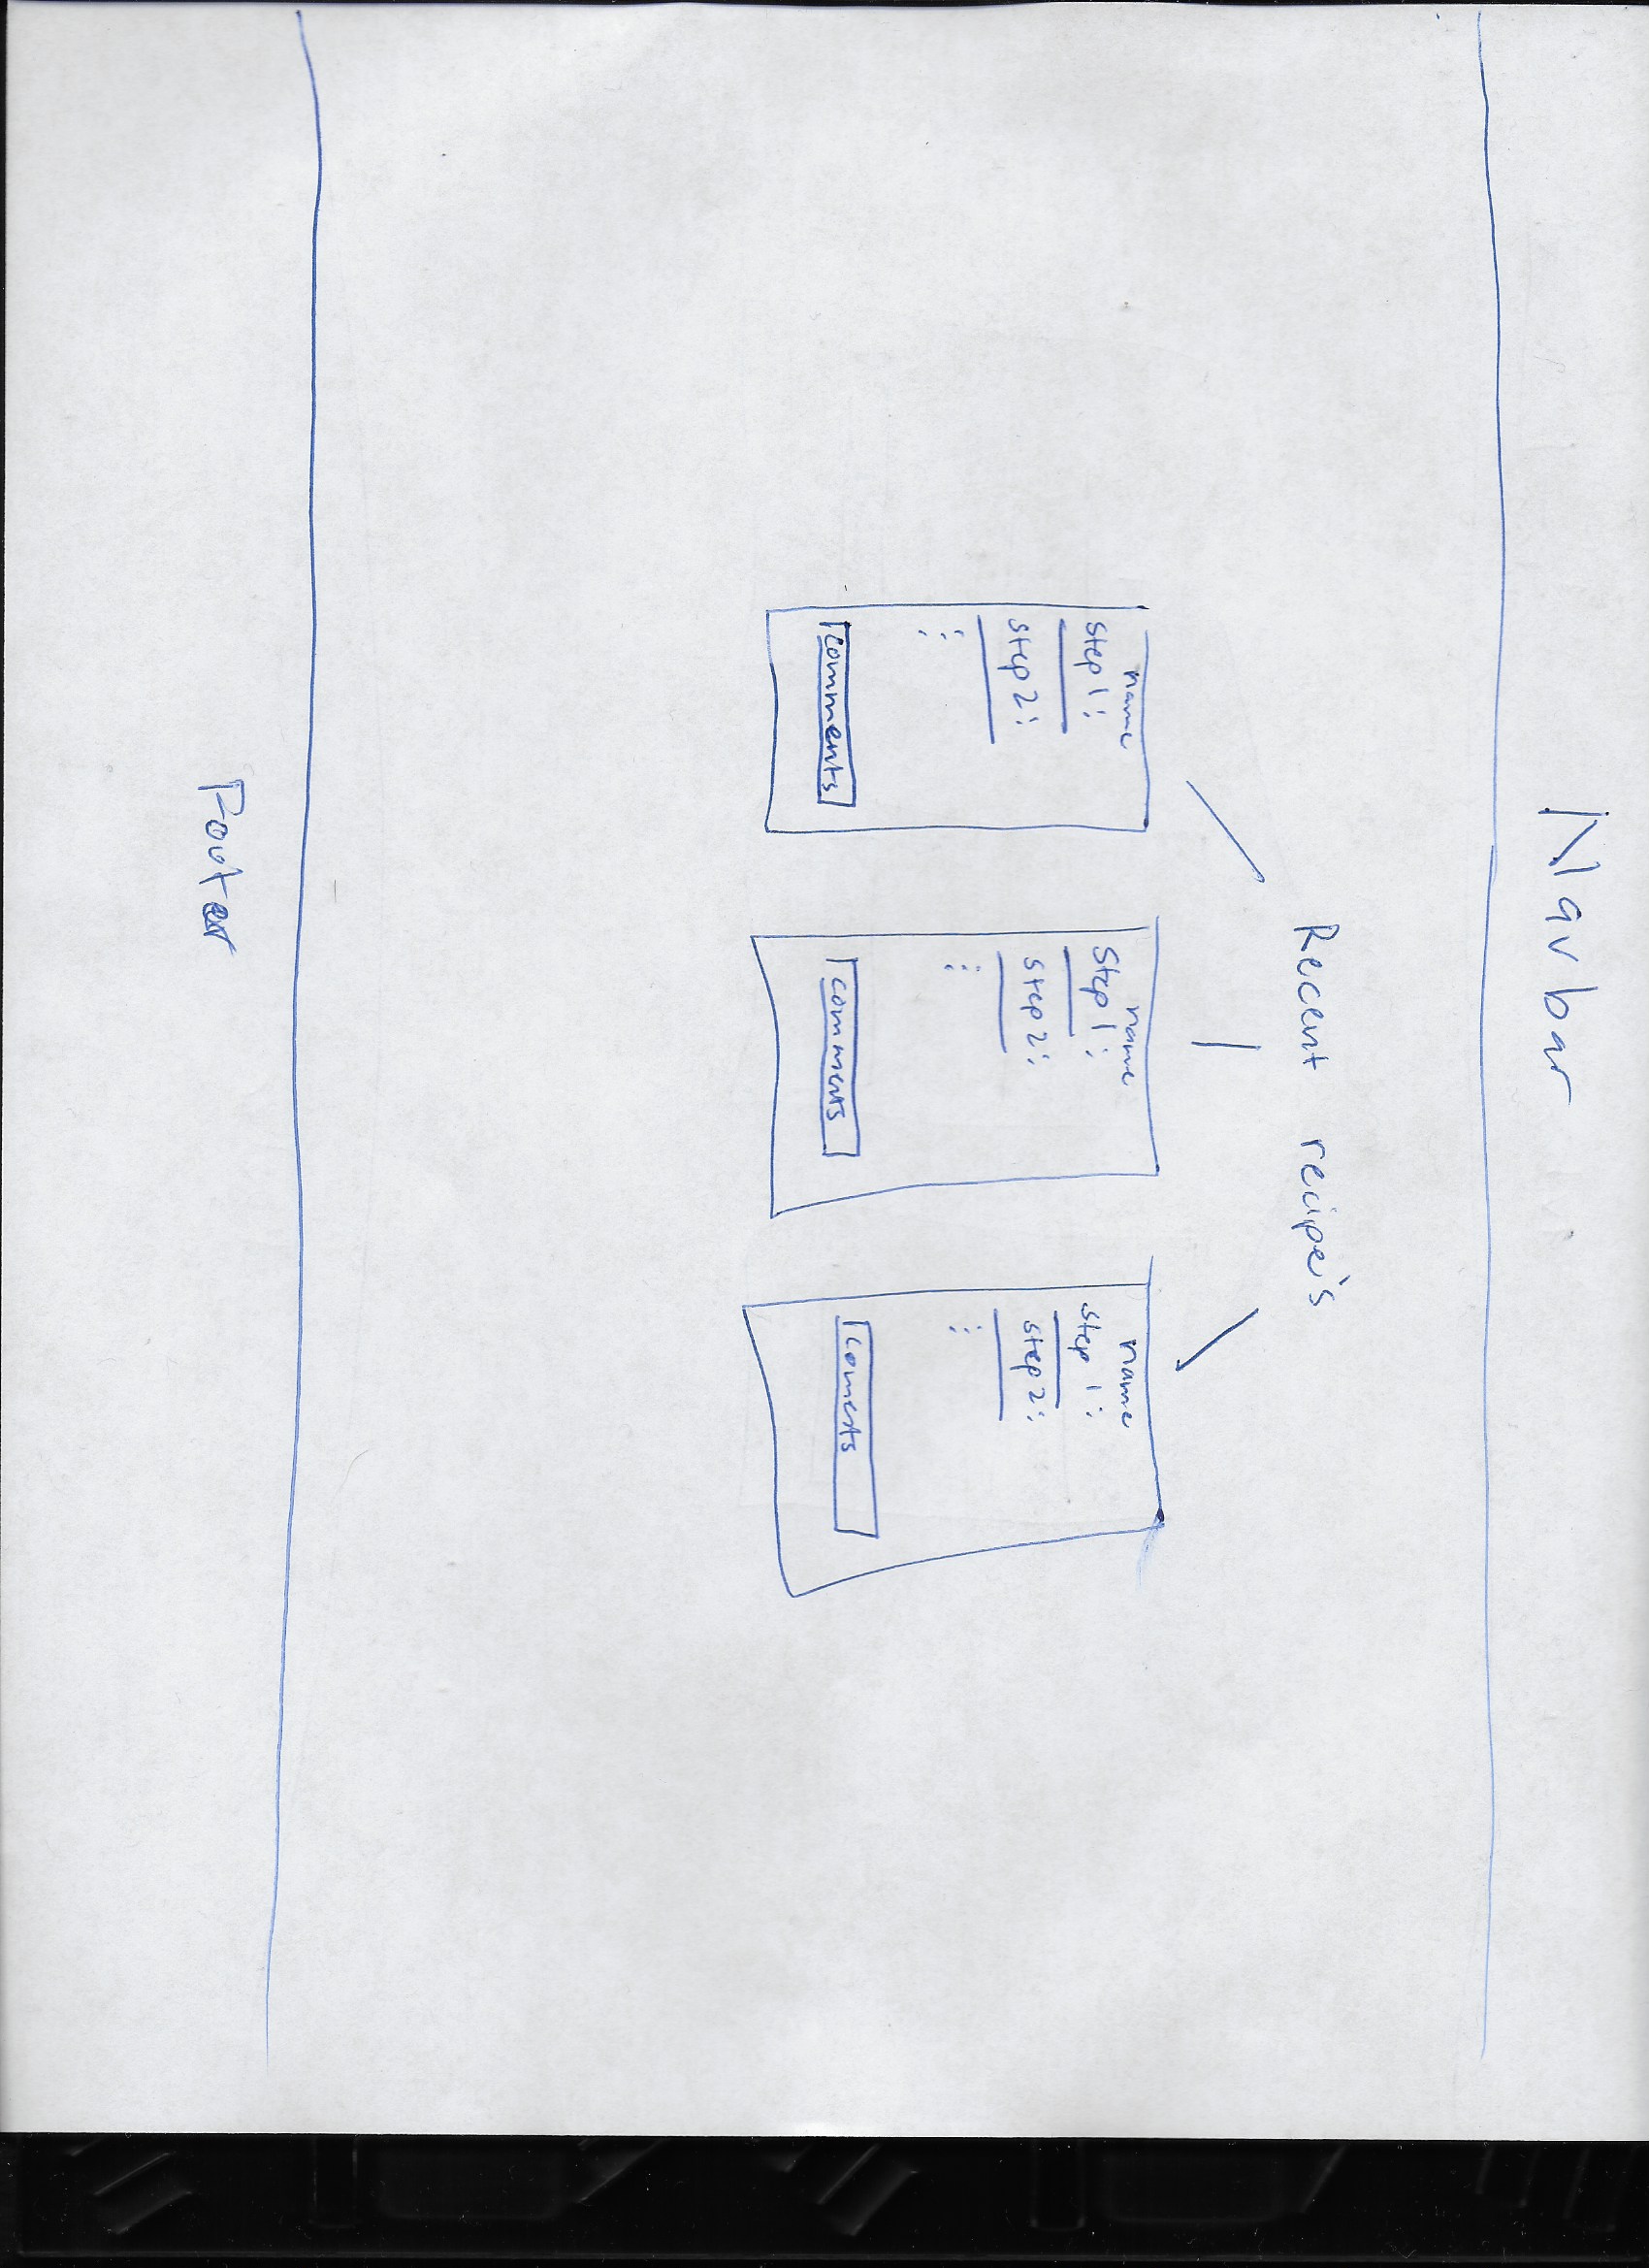 Navbar
Recent recipe's
name
Step 1:
step 2:
comments
name
Step 1:
step 2:
comments
name
step 1:
step 2:
Coments
Footer